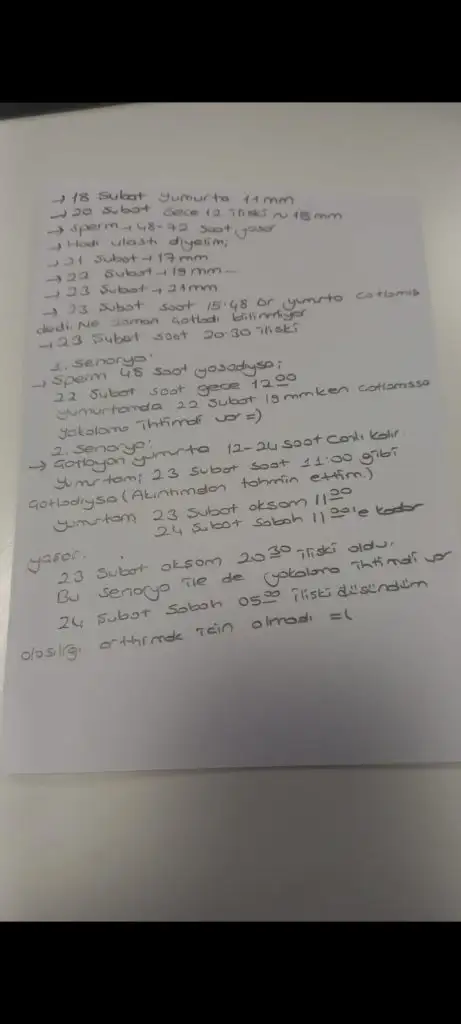 → 18 Şubat yumurta 11 mm
→ 20 Şubat Gece 12 ilişki ~ 15 mm
→ Sperm → 48-72 saat yaşar
→ Hadi ulaştı diyelim;
→ 21 Şubat → 17 mm
→ 22 Şubat → 19 mm
→ 23 Şubat → 21 mm
→ 23 Şubat saat 15:48 Dr yumurta çatlamış
dedi. Ne zaman çatladı bilinmiyor
→ 23 Şubat saat 20:30 ilişki
1. Senaryo:
→ Sperm 48 saat yaşadıysa;
22 Şubat saat gece 12 00
yumurtamda 22 Şubat 19 mmken çatlamışsa
yakalama ihtimali var =)
2. Senaryo:
→ Çatlayan yumurta 12-24 saat canlı kalır.
yumurtam; 23 Şubat saat 11:00 gibi
çatladıysa (Akıntımdan tahmin ettim.)
yumurtam 23 Şubat akşam 11 00
24 Şubat sabah 11 00'e kadar
yaşar.
23 Şubat akşam 20 30 ilişki oldu.
Bu senaryo ile de yakalama ihtimali var
24 Şubat Sabah 05 00 ilişki düşündüm
olasılığı arttırmak için olmadı =(